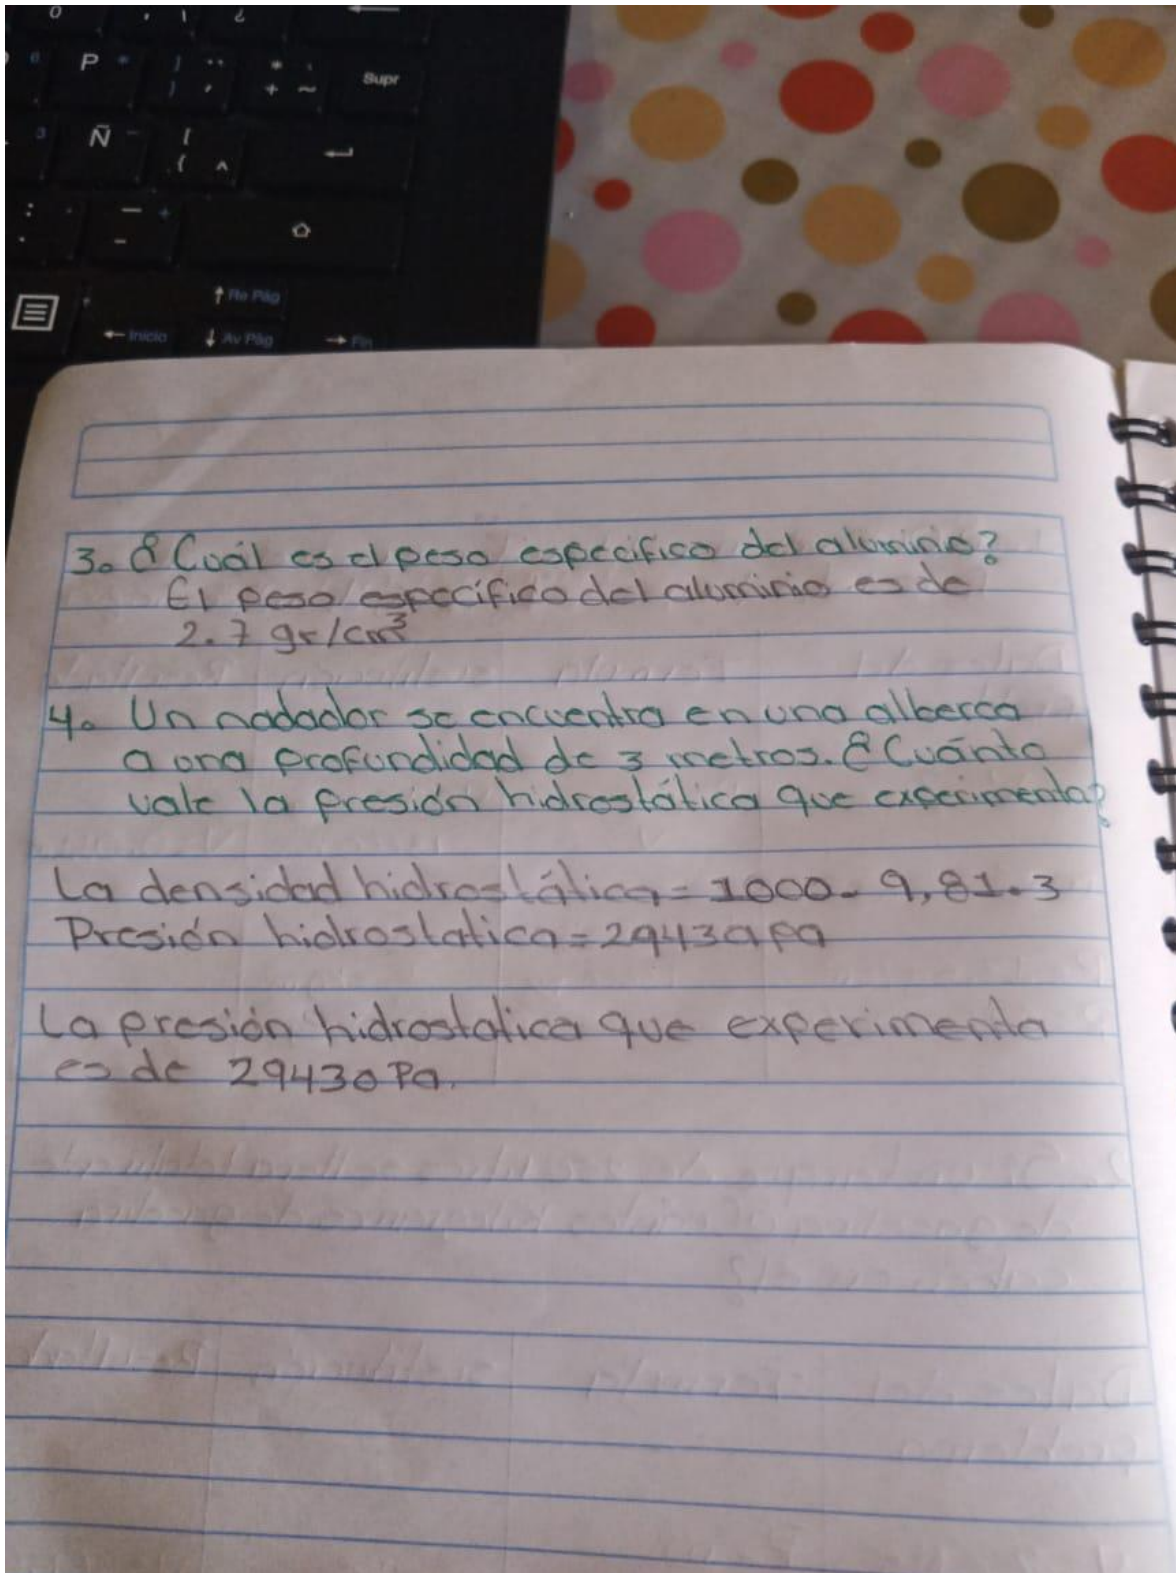 P
Supr
Ñ
↑ Re Pág
← Inicio ↓ Av Pág → Fin
3. ¿Cuál es el peso especifico del aluminio?
El peso específico del aluminio es de
2.7 gr/cm³
4. Un nadador se encuentra en una alberca
a una profundidad de 3 metros. ¿Cuánto
vale la presión hidrostática que experimenta?
La densidad hidrostática= 1000. 9,81.3
Presión hidrostatica=29430 pa
La presión hidrostatica que experimenta
es de 29430 Pa.